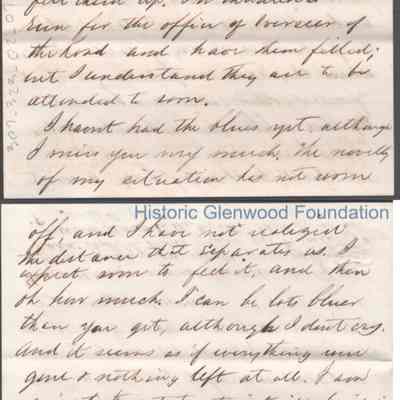 run for the office of Overseer of
the Road and have them filled;
but I understand they are to be
attended to soon.
I havnt had the blues yet, although
I miss you very much. The novelty
of my situation has not worn
Historic Glenwood Foundation
off, and I have not realized
the distance that separates us. I
expect soon to feel it, and then
oh how much. I can be lots bluer
than you get, although I dont cry.
And it seems as if everything were
gone & nothing left at all. I am